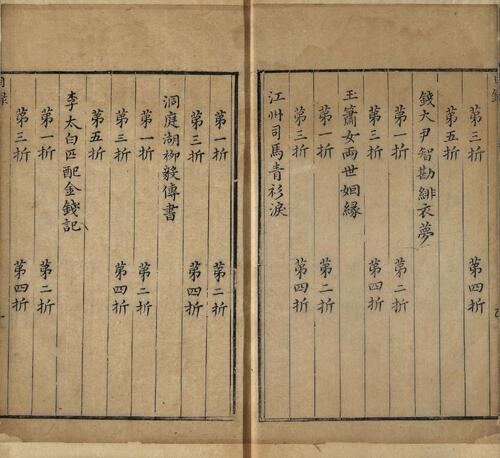 第三折 第四折
第五折
錢大尹智勘緋衣夢
第一折 第二折
第三折 第四折
玉簫女兩世姻緣
第一折 第二折
第三折 第四折
江州司馬青衫淚
第一折 第二折
第三折 第四折
洞庭湖柳毅傳書
第一折 第二折
第三折 第四折
第五折
李太白匹配金錢記
第一折 第二折
第三折 第四折